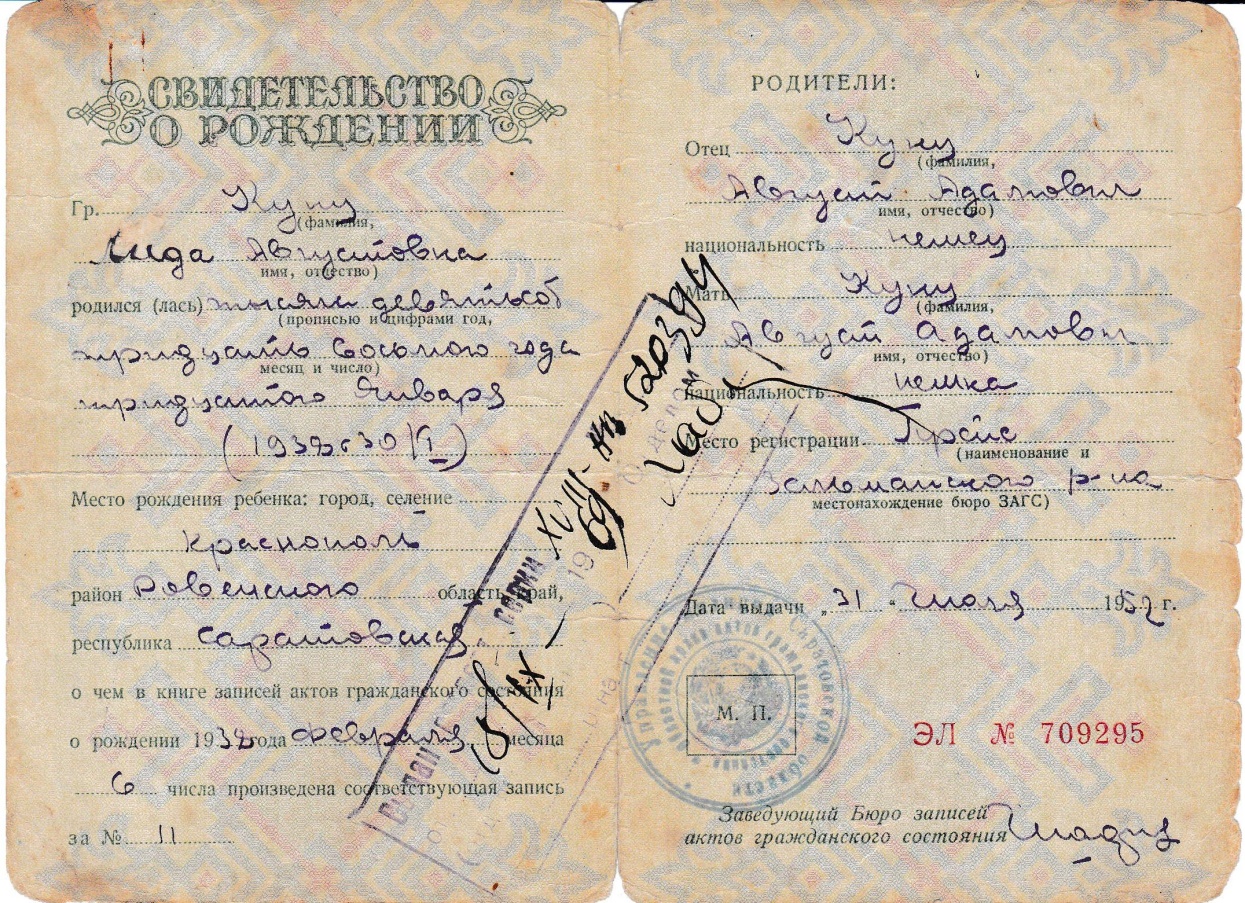 СВИДЕТЕЛЬСТВО
О РОЖДЕНИИ
Гр. Кунц
(фамилия,
Лида Августовна
имя, отчество)
родился (лась) тысяча девятьсот
(прописью и цифрами год,
тридцать восьмого года
месяц и число)
тридцатого Января
(1938 г 30/I)
Место рождения ребенка: город, селение
Краснополь
район Ровенского область, край,
республика Саратовская
о чем в книге записей актов гражданского состояния
о рождении 1938 года Февраля месяца
6 числа произведена соответствующая запись
за № 11
РОДИТЕЛИ:
Отец Кунц
(фамилия,
Август Адамович
имя, отчество)
национальность немец
Мать Кунц
(фамилия,
Август Адамович
имя, отчество)
национальность немка
Место регистрации
(наименование и
р-на
местонахождение бюро ЗАГС)
Дата выдачи „31“ Июля 1952 г.
М. П.
ЭЛ № 709295
Заведующий Бюро записей
актов гражданского состояния
Саратовской области
серии XVIII-НВ 520394
15/IX 19